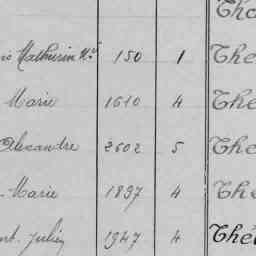 Thé
Mathurin 150 1 Thé
Marie 1610 4 Thé
Alexandre 2602 5 Thé
Marie 1897 4 Thé
Julien 1947 4 Thé